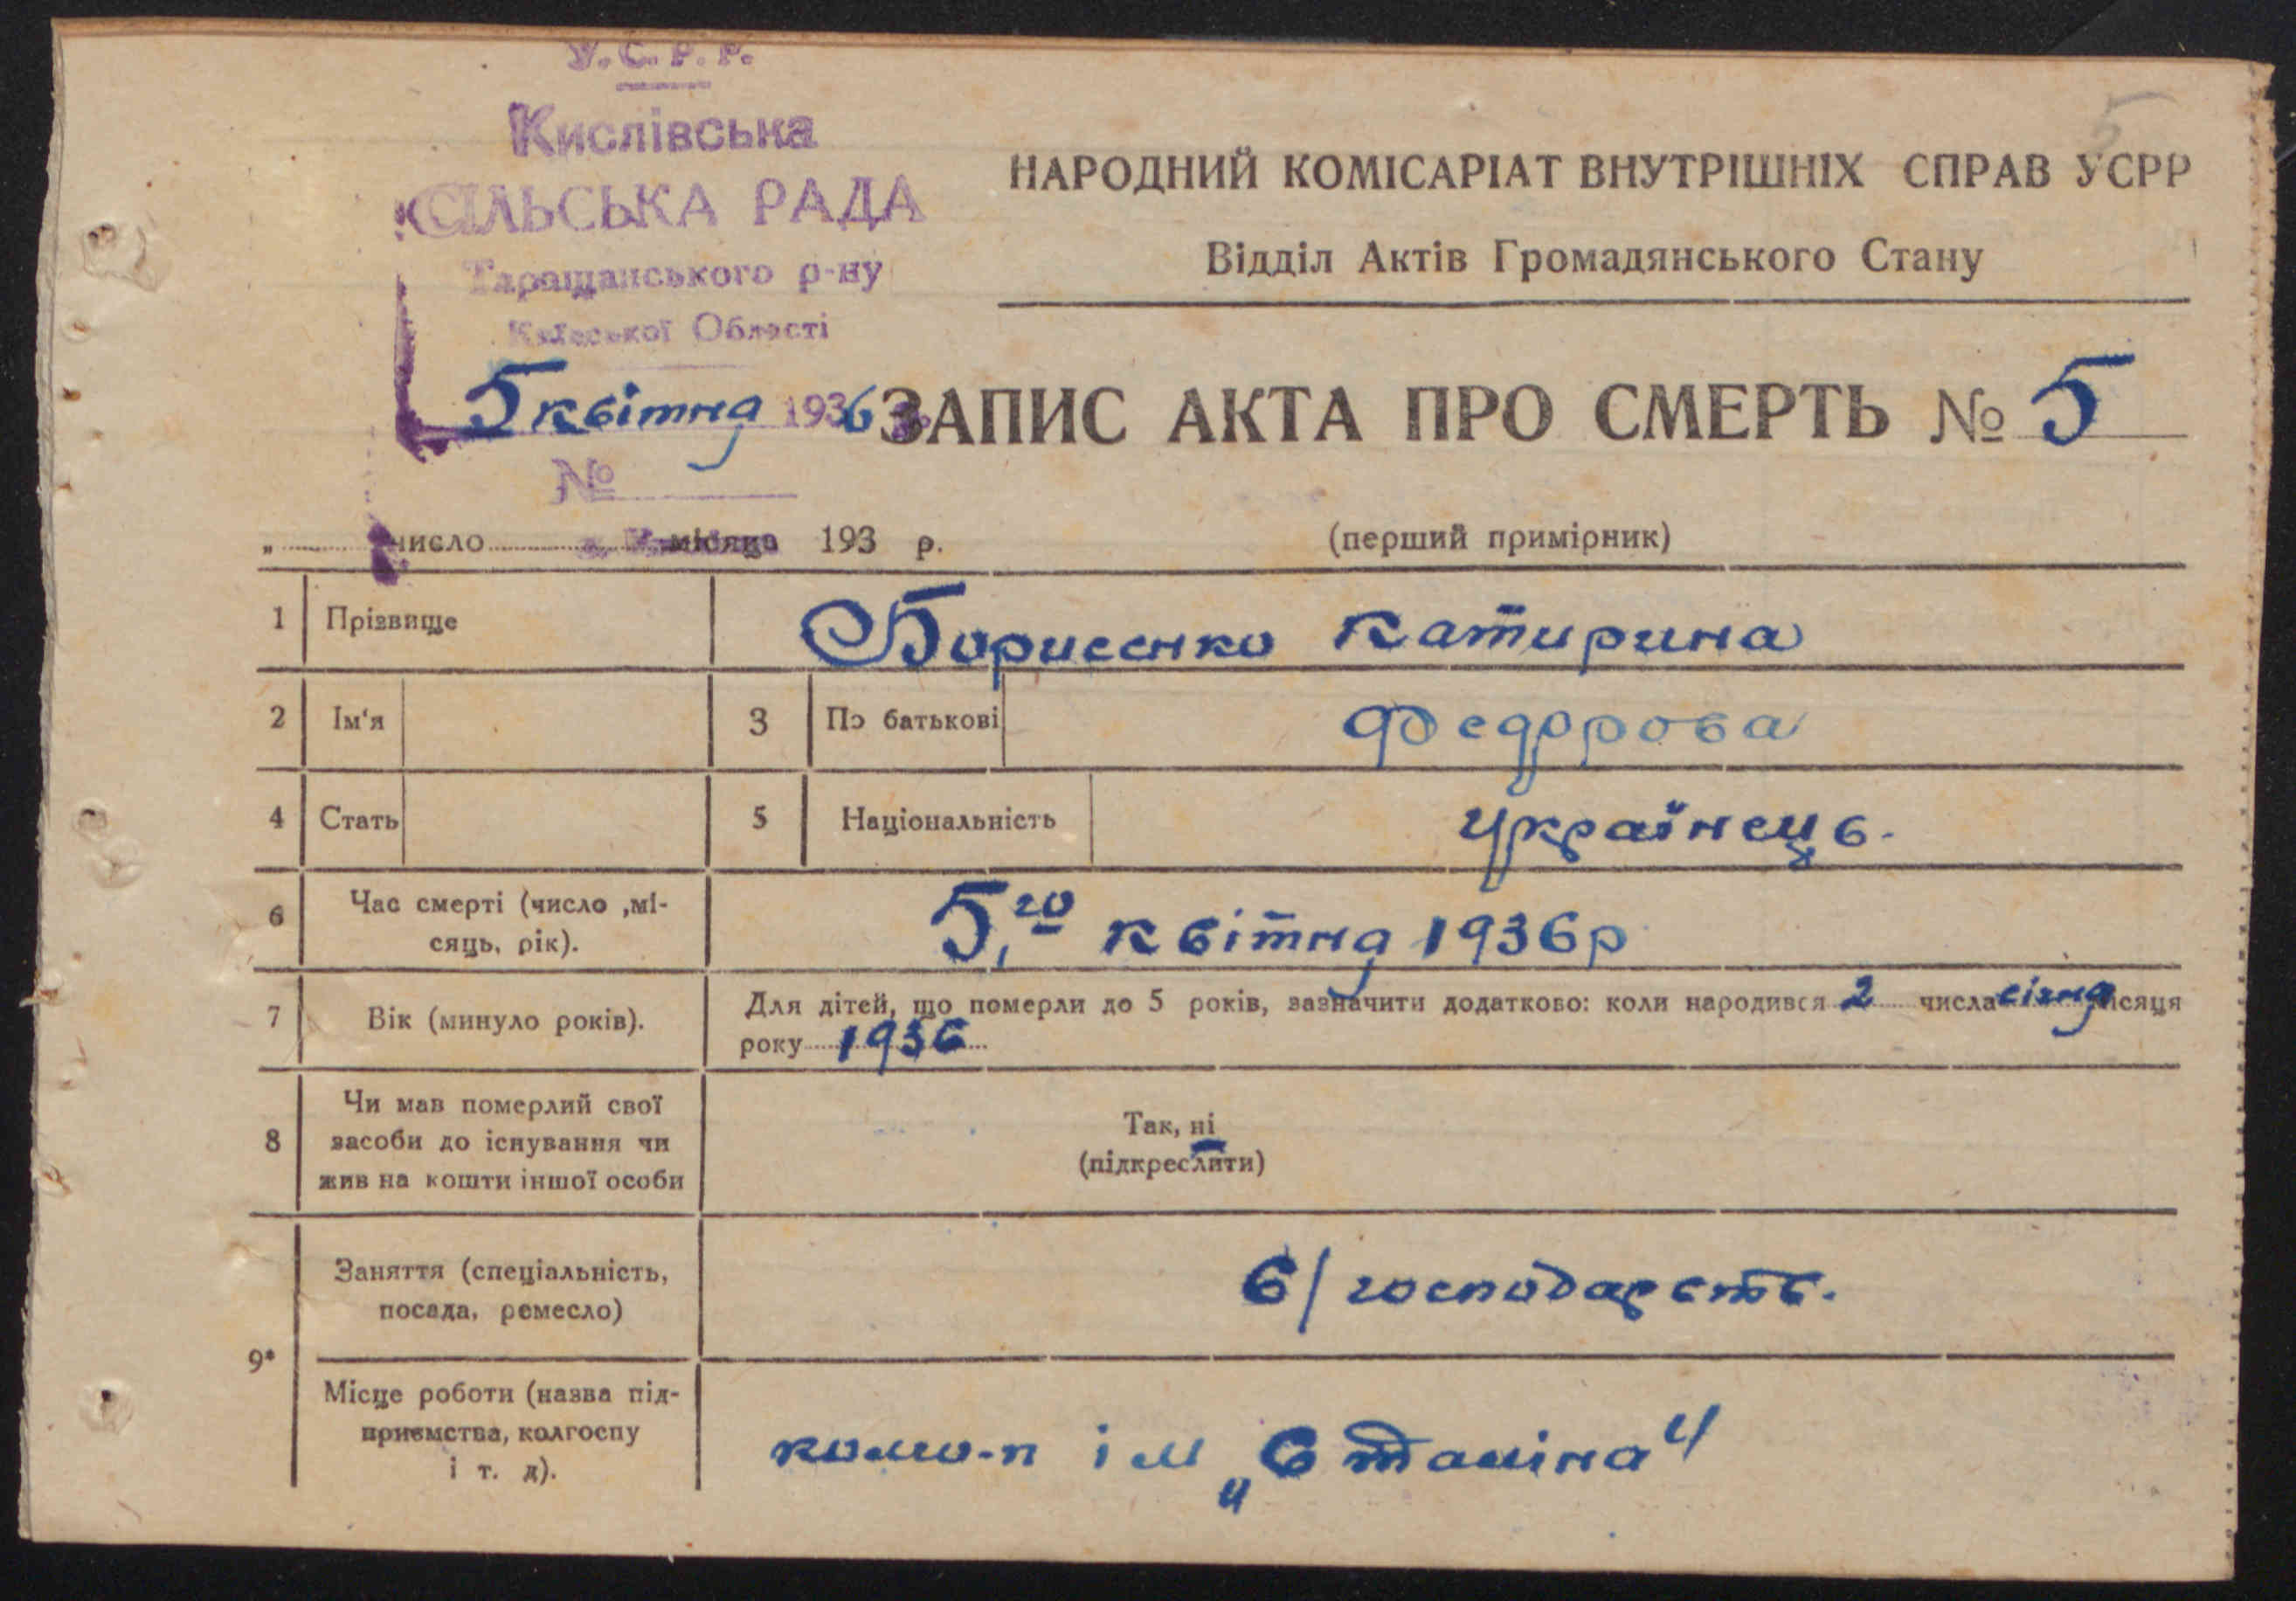 У.С.Р.Р.
Кислівська
СІЛЬСЬКА РАДА
Таращанського р-ну
Київської Області
5 квітня 1936
№
5
НАРОДНИЙ КОМІСАРІАТ ВНУТРІШНІХ СПРАВ УСРР
Відділ Актів Громадянського Стану
ЗАПИС АКТА ПРО СМЕРТЬ № 5
„ число місяця 193 р.
(перший примірник)
1 Прізвище Борисенко Катирина
2 Ім'я 3 По батькові Федорова
4 Стать 5 Національність Українець.
6 Час смерті (число ,мі-
сяць, рік).
5,го квітня 1936р
7 Вік (минуло років).
Для дітей, що померли до 5 років, зазначити додатково: коли народився 2 числа січня місяця
року 1936
8 Чи мав померлий свої
засоби до існування чи
жив на кошти іншої особи
Так, ні
(підкреслити)
9*
Заняття (спеціальність,
посада, ремесло)
с/господарств.
Місце роботи (назва під-
приємства, колгоспу
і т. д).
ім „Сталіна"